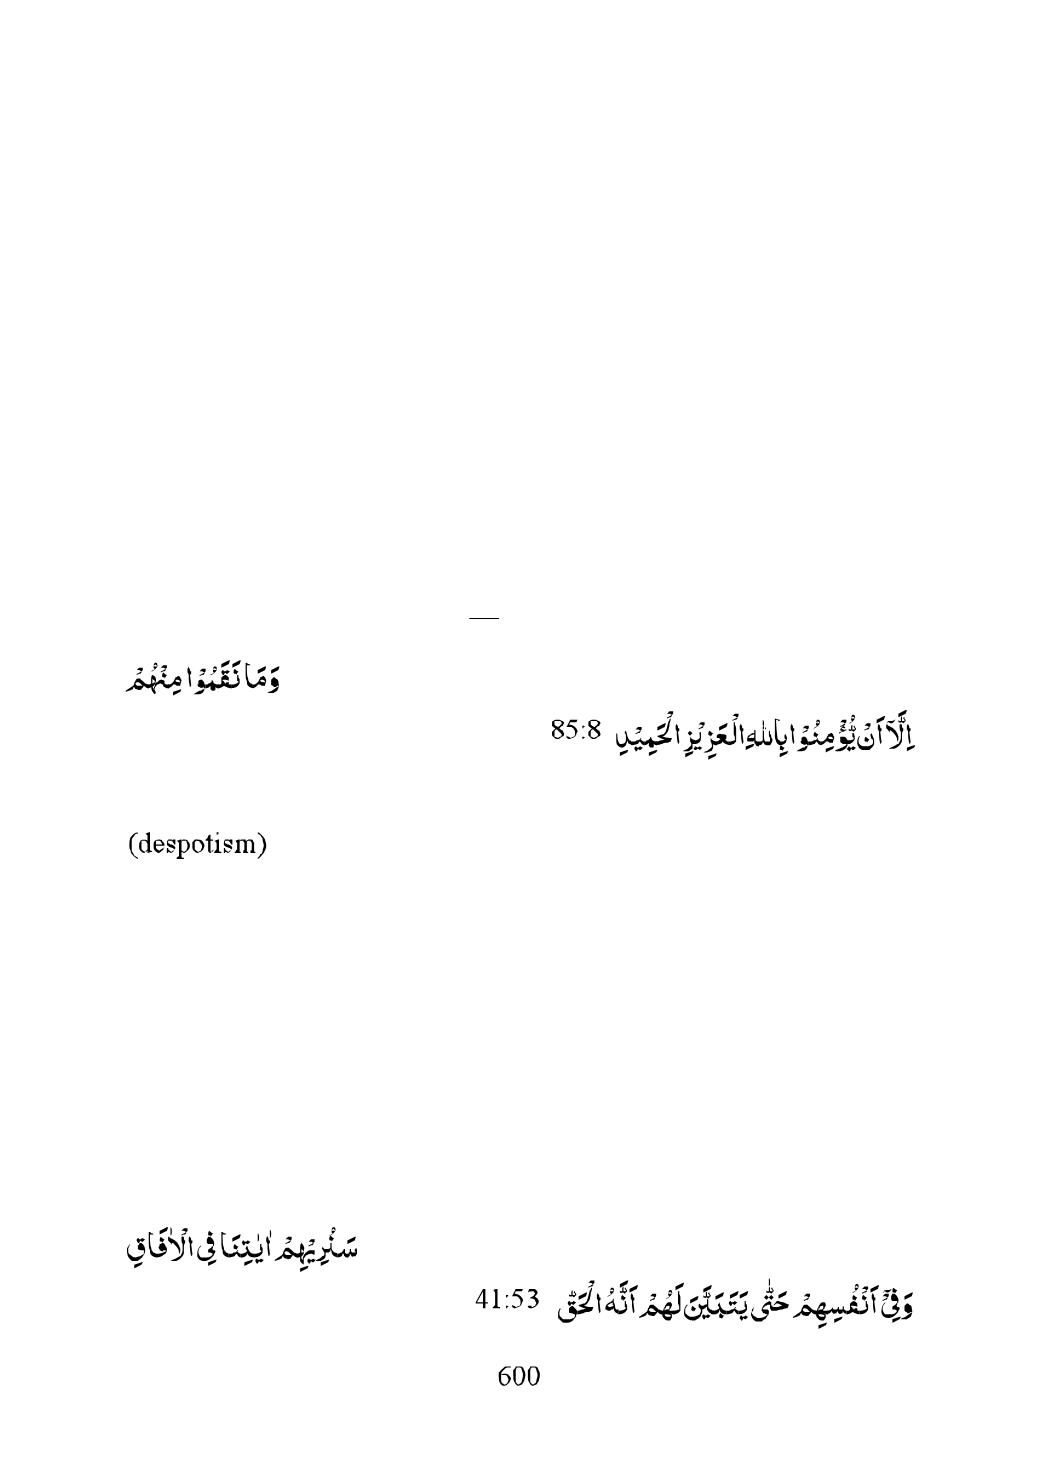 وَمَا نَقَمُوْا مِنْهُمْ
اِلَّآ اَنْ يُّؤْمِنُوْا بِاللهِ الْعَزِيْزِ الْحَمِيْدِ 85:8
(despotism)
سَنُرِيْهِمْ اٰيٰتِنَا فِى الْاٰفَاقِ
وَفِىْٓ اَنْفُسِهِمْ حَتّٰى يَتَبَيَّنَ لَهُمْ اَنَّهُ الْحَقُّ 41:53
600